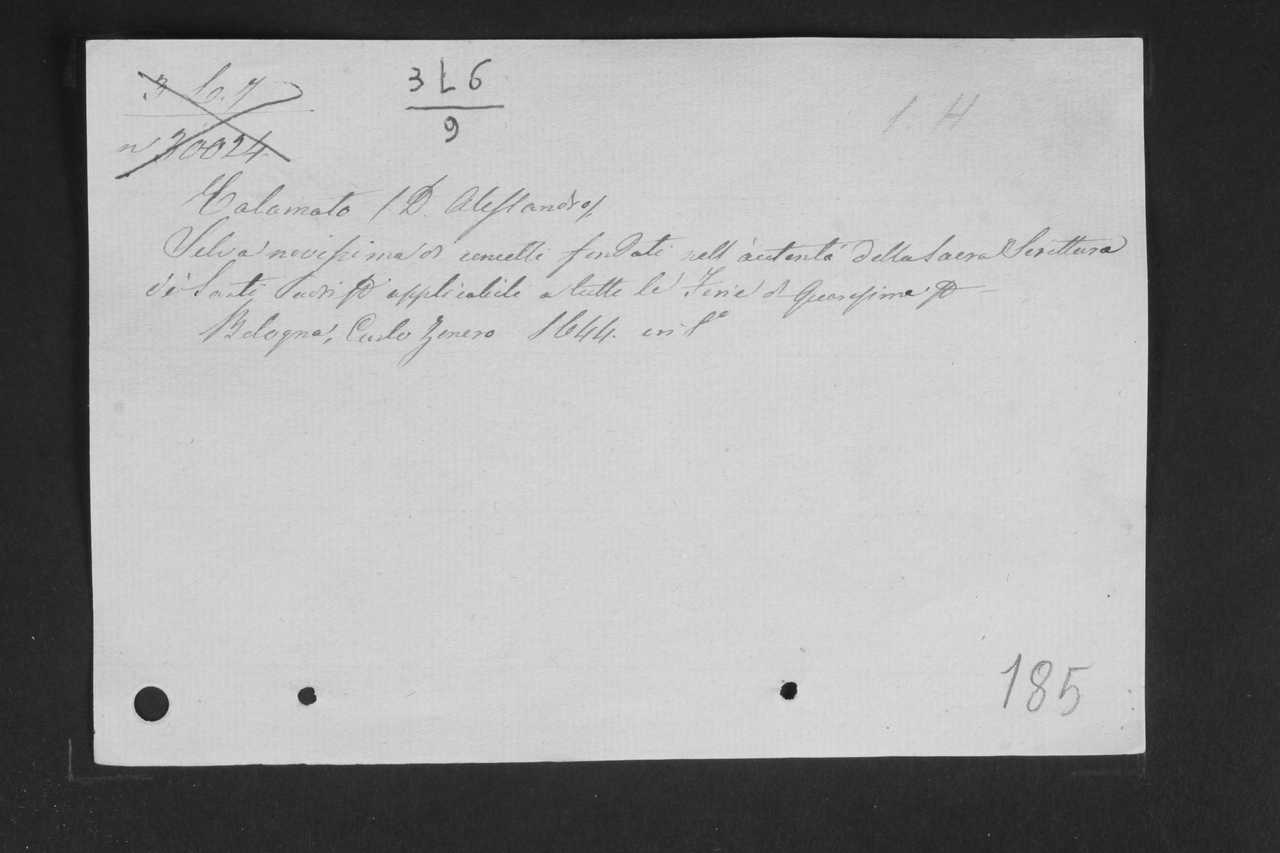 3 6.7
n 30024
3 L 6
9
1. H
Calamato / D. Alessandro/
Selva novissima di concetti fondati nell'autorità della Sacra Scrittura
de' Santi Padri applicabile a tutte le Ferie di Quaresima
Bologna, Carlo Zenero 1644. in 8°
185